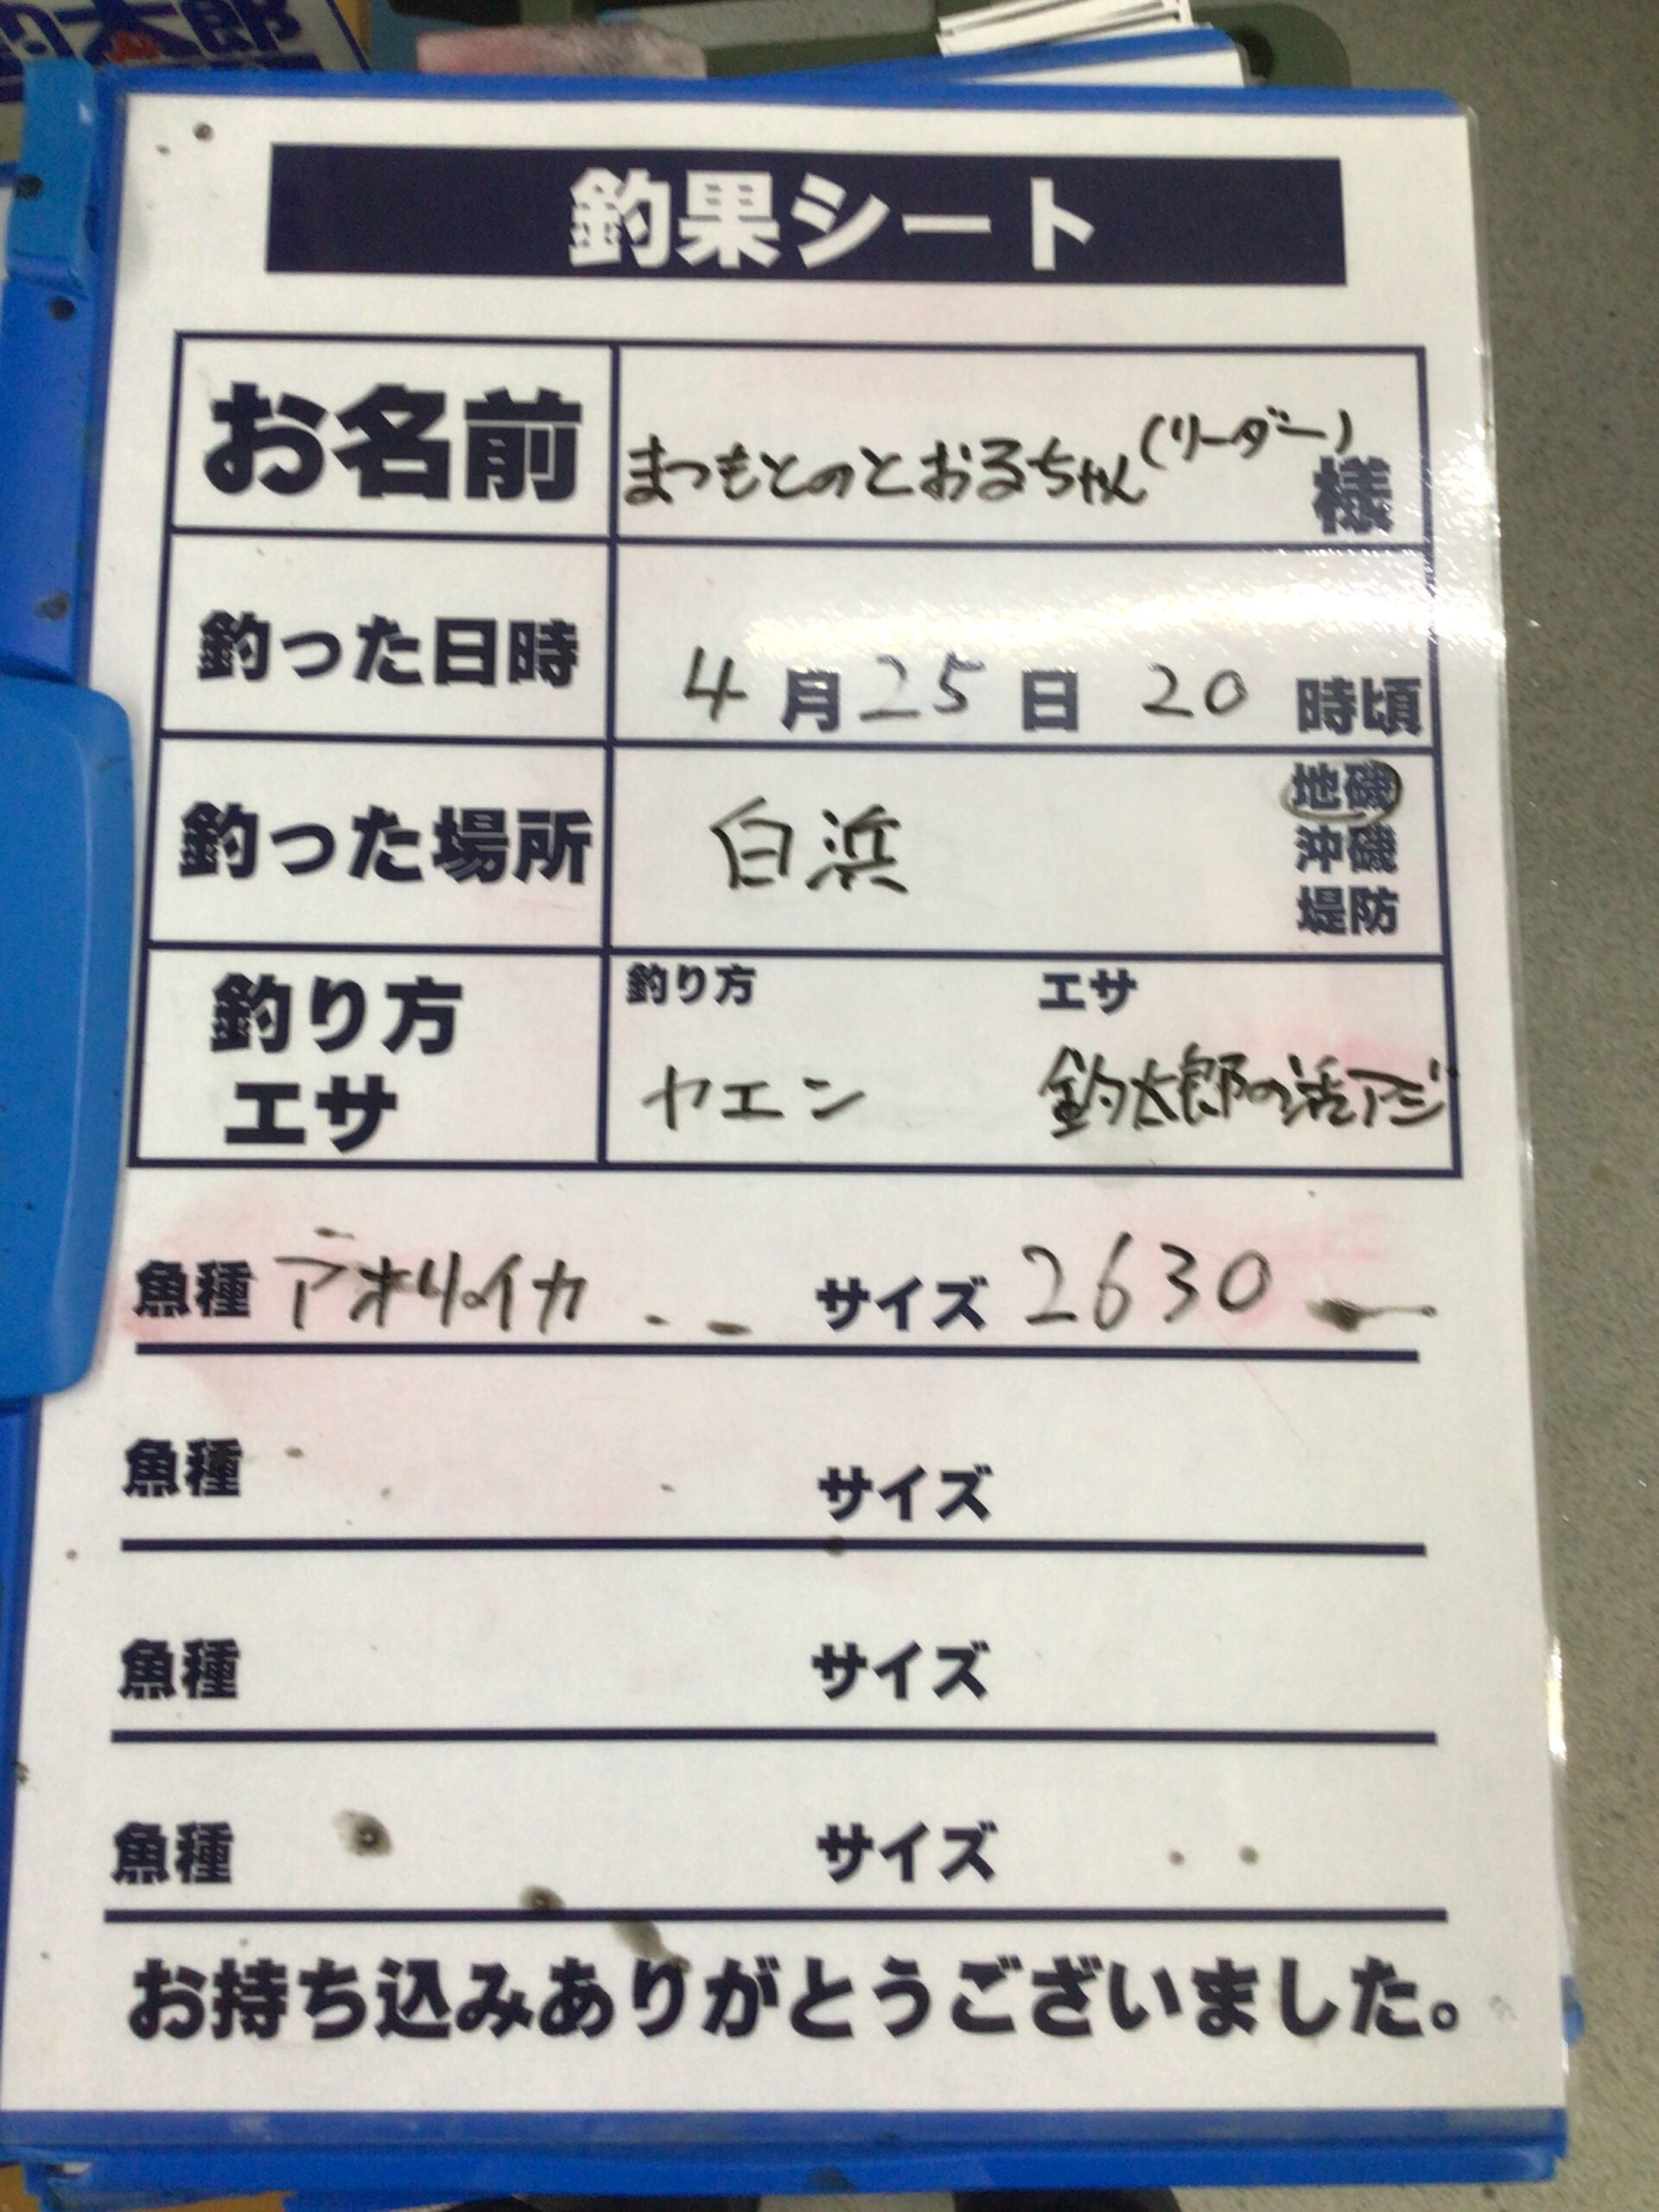 釣太郎
釣果シート
お名前 まつもとのとおるちゃん(リーダー) 様
釣った日時 4月25日 20時頃
釣った場所 白浜 地磯
沖磯
堤防
釣り方 エサ
釣り方
エサ
ヤエン 釣太郎の活アジ
魚種 アオリイカ サイズ 2630
魚種 サイズ
魚種 サイズ
魚種 サイズ
お持ち込みありがとうございました。